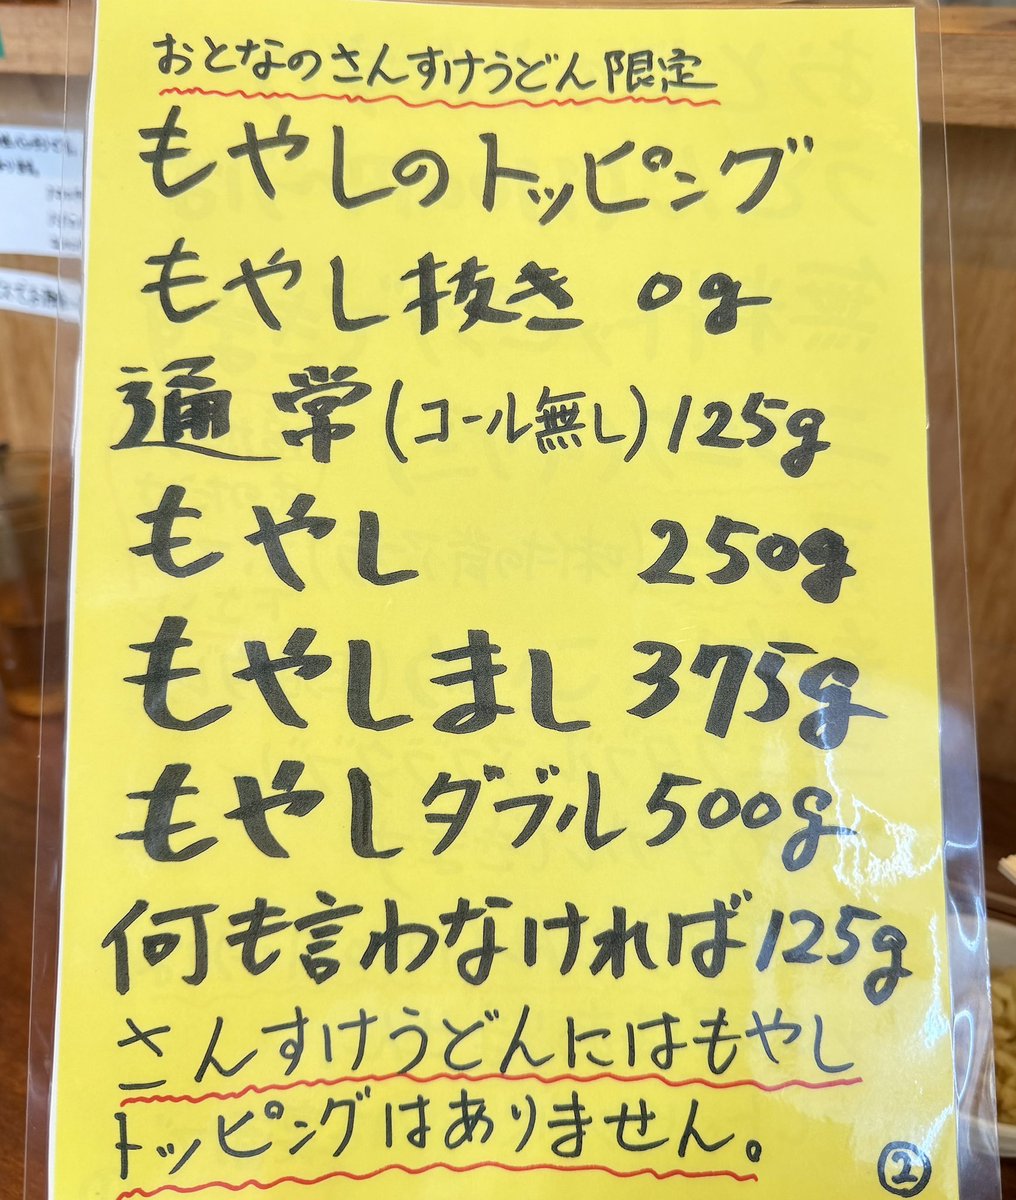 おとなのさんすけうどん限定
もやしのトッピング
もやし抜き 0g
通常(コール無し)125g
もやし 250g
もやしまし 375g
もやしダブル 500g
何も言わなければ125g
さんすけうどんにはもやし
トッピングはありません。
②